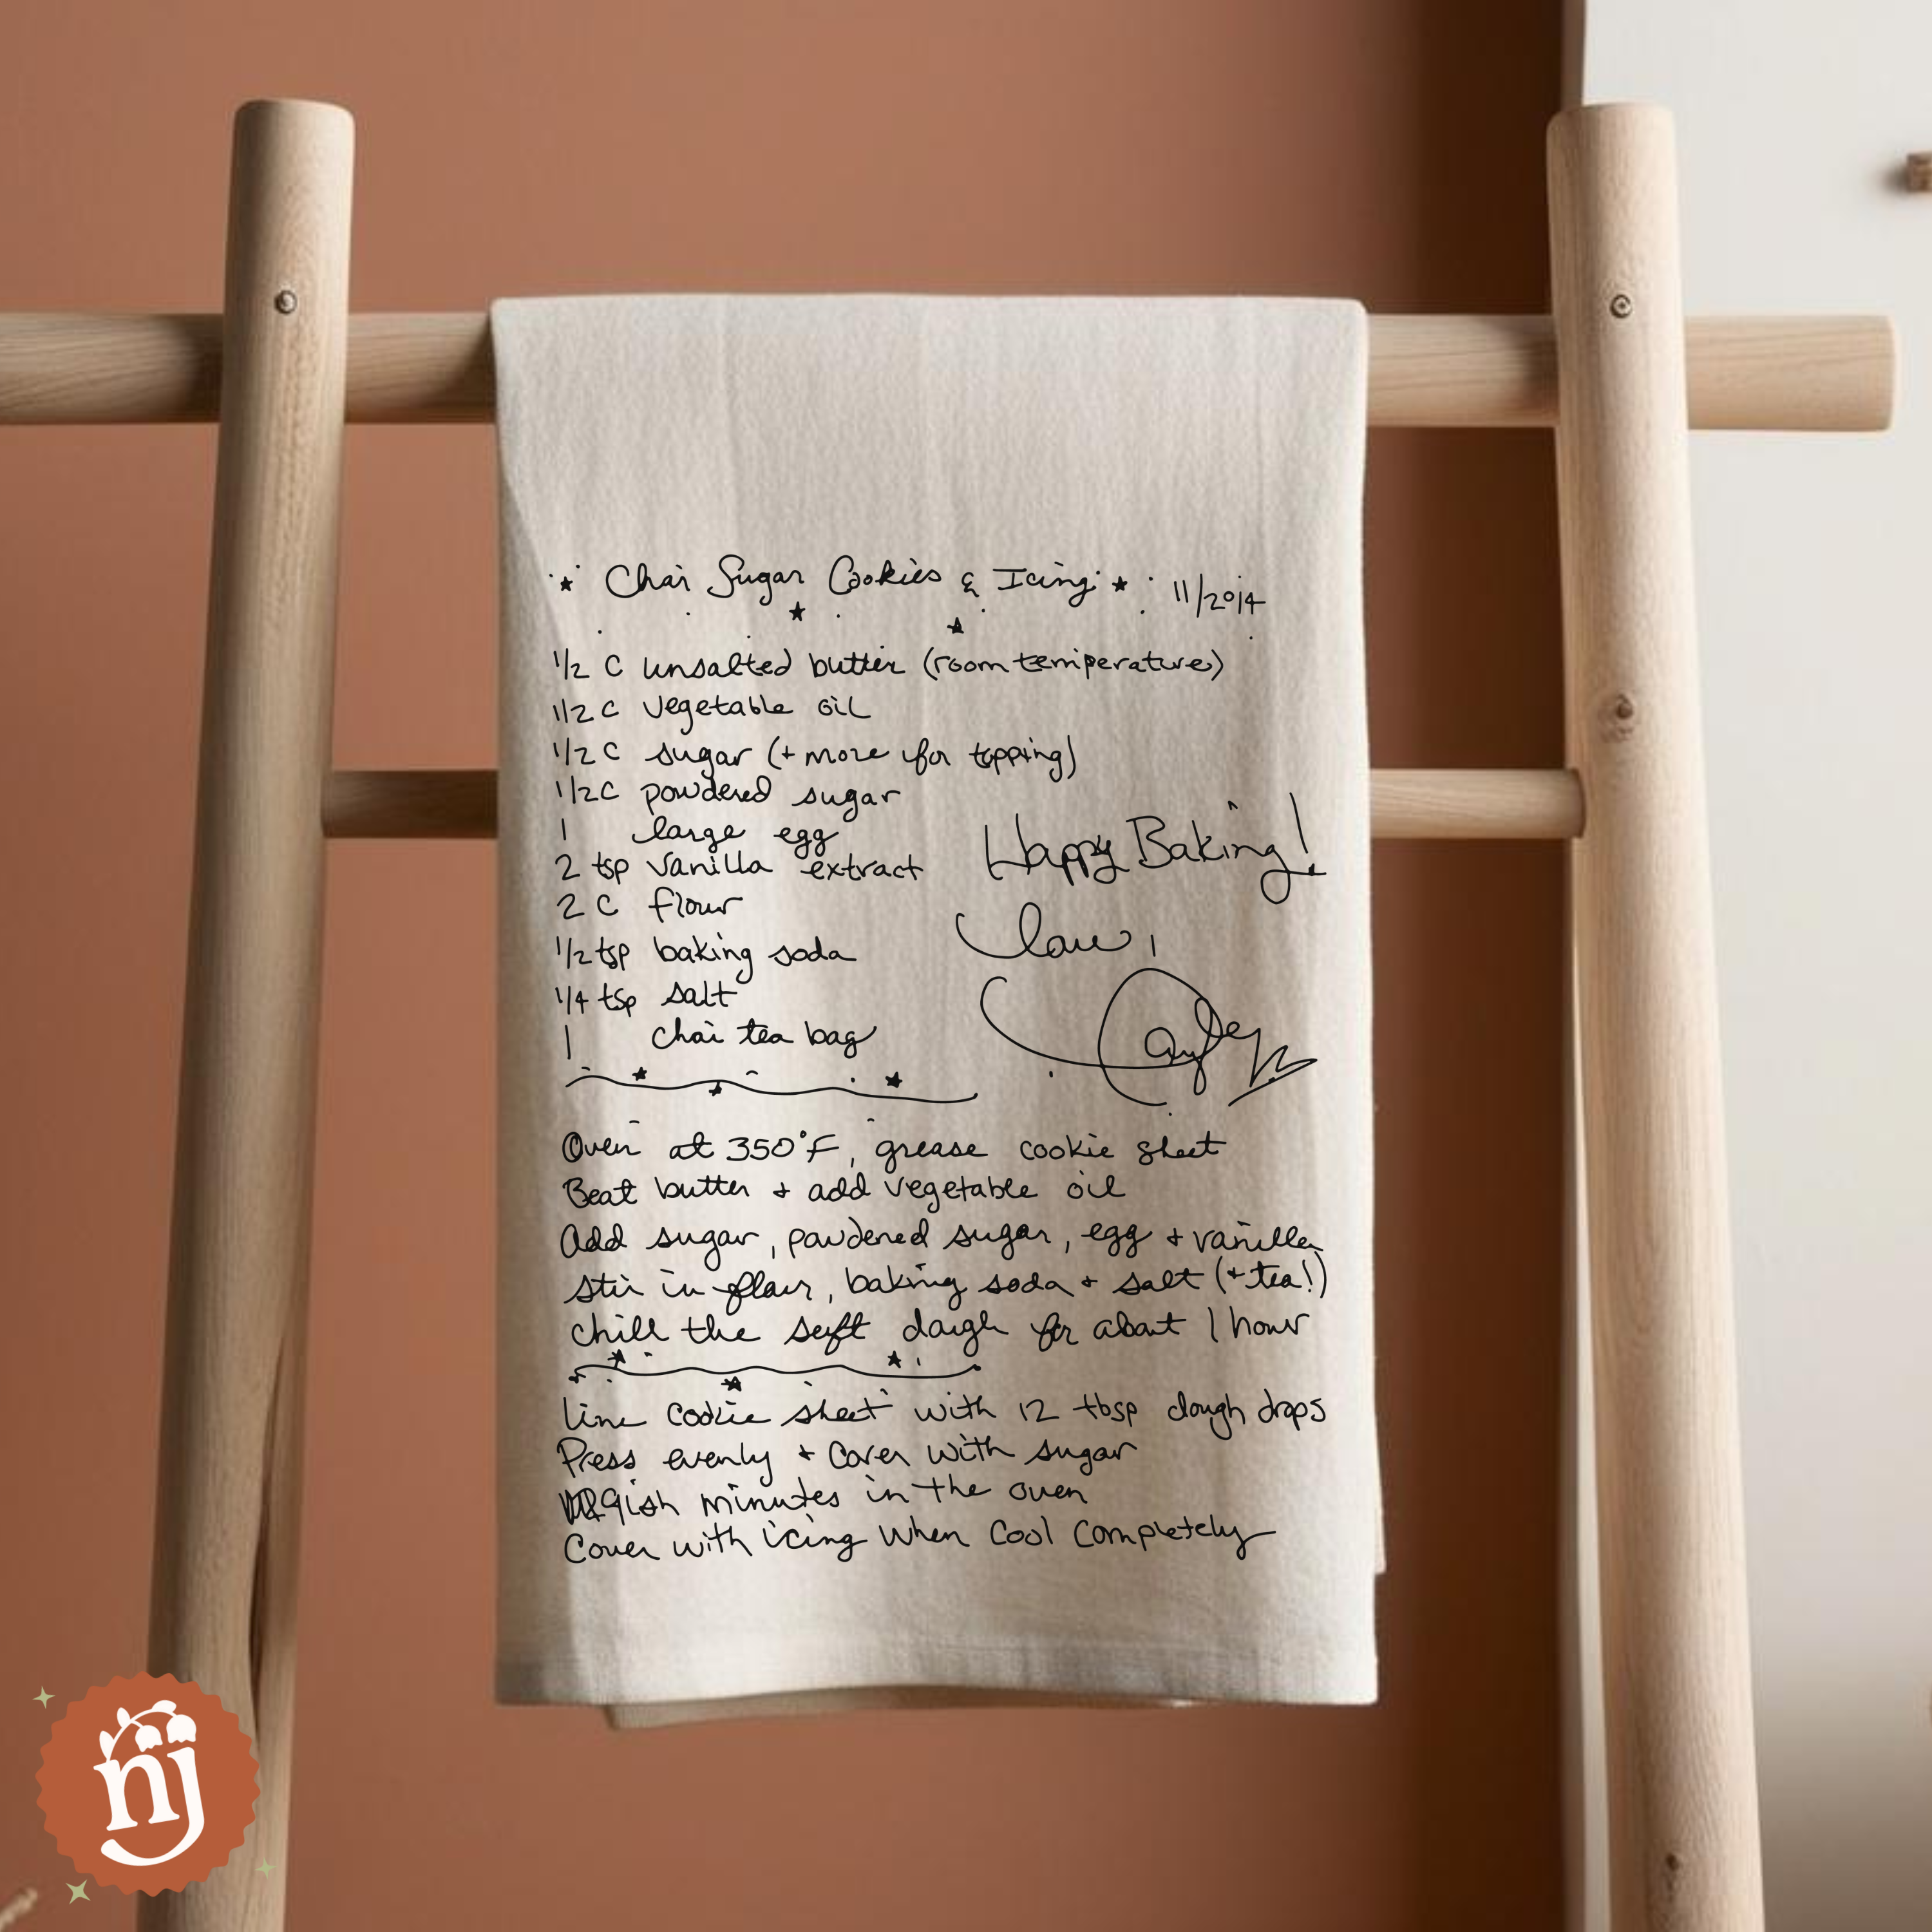 Chai Sugar Cookies & Icing 11/2014
1/2 C unsalted butter (room temperature)
1/2 C vegetable oil
1/2 C sugar (+ more for topping)
1/2 C powdered sugar
1 large egg
2 tsp vanilla extract
2 C flour
1/2 tsp baking soda
1/4 tsp salt
1 chai tea bag
Happy Baking!
Love,
Oven at 350°F, grease cookie sheet
Beat butter + add vegetable oil
Add sugar, powdered sugar, egg + vanilla
Stir in flour, baking soda + salt (+ tea!)
Chill the soft dough for about 1 hour
Line cookie sheet with 12 tbsp dough drops
Press evenly + cover with sugar
9ish minutes in the oven
Cover with icing when cool completely
nj